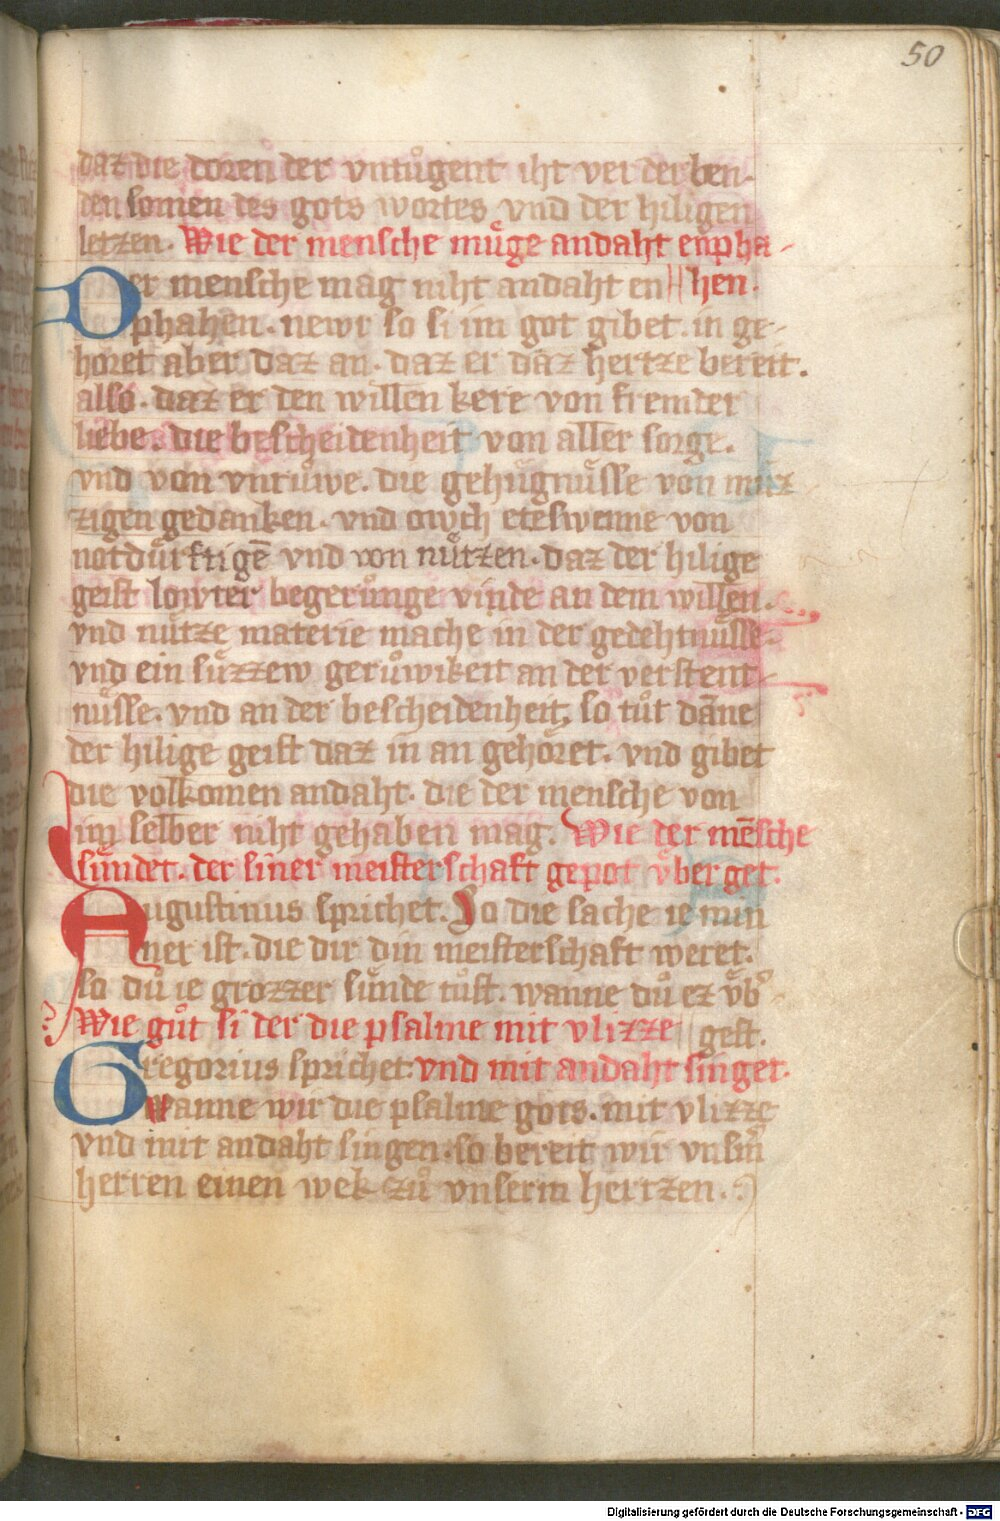 50
daz die doren der vntůgent iht verderben.
den somen des gots wortes vnd der hiligen
letzen. Wie der mensche muͤge andaht enpha-
Der mensche mag niht andaht en||hen.
phahen. newr so si im got gibet. in ge-
hoͤret aber daz an. daz er daz hertze bereit.
also. daz er den willen kere von fremder
liebe. die bescheidenheit von aller sorge.
vnd von vntruͤwe. die gehuͤgnuͤsse von muͤz
zigen gedanken. vnd owch eteswenne von
notduͤrftigē vnd von nuͤtzen. daz der hilige
geist lowter begerůnge vinde an dem willen.
vnd nuͤtze materie mache in der gedehtnuͤsse.
vnd ein suͤzzew gerůwikeit an der verstent-
nuͤsse. vnd an der bescheidenheit, so tůt dāne
der hilige geist daz in an gehoͤret. vnd gibet
die volkomen andaht. die der mensche von
im selber niht gehaben mag. Wie der mēsche
suͤndet. der siner meisterschaft gepot vͤber get.
Augustinus sprichet. So die sache ie min
ner ist. die dir din meisterschaft weret.
so dů ie grozzer suͤnde tůst. wanne dů ez vͤb᷎
Wie gůt si der die psalme mit vlizze || gest.
Gregorius sprichet. vnd mit andaht singet.
wanne wir die psalme gots. mit vlizze
vnd mit andaht singen. so bereit wir vnsm̄
herren einen wek zů vnserm hertzen.
Digitalisierung gefördert durch die Deutsche Forschungsgemeinschaft - DFG